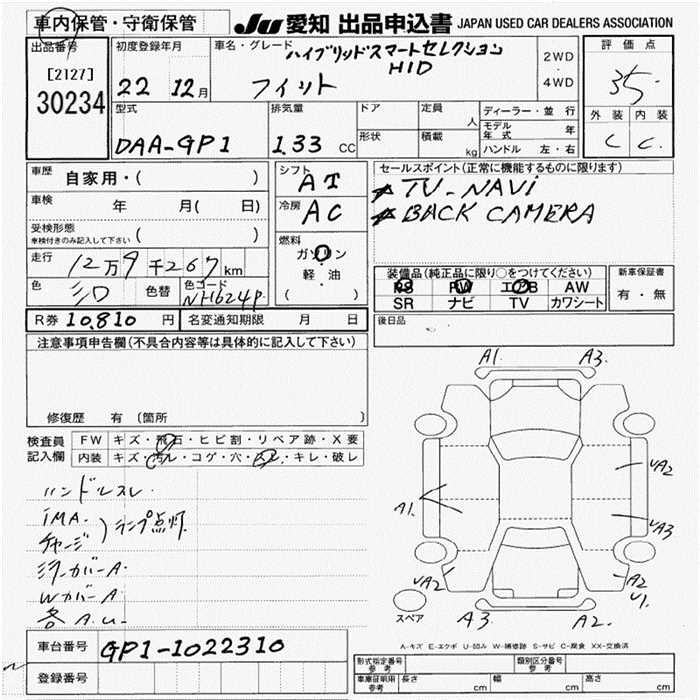 車内保管・守衛保管
JU 愛知 出品申込書 JAPAN USED CAR DEALERS ASSOCIATION
出品番号
[2127]
30234
初度登録年月
22 12月
車名・グレード
ハイブリッドスマートセレクション
HID
フィット
2WD
・
4WD
評価点
3.5
外装 内装
C C
型式
DAA-GP1
排気量
1.33 CC
ドア
形状
定員
人
積載
kg
ディーラー・並行
モデル年式 年
ハンドル 左・右
車歴 自家用・( )
車検 年 月( 日)
受検形態
車検付きのみ記入して下さい ( )
走行 12万9千267km
色 シロ 色替 色コード NH624P
シフト
AT
冷房
AC
燃料
ガソリン
軽・油
( )
セールスポイント(正常に機能するものに限ります)
TV-NAVi
BACK CAMERA
装備品(純正品に限り○をつけてください)
PS PW エアB AW
SR ナビ TV カワシート
新車保証書
有・無
R券 10,810 円
名変通知期限 月 日
後日品
注意事項申告欄(不具合内容等は具体的に記入して下さい)
修復歴 有 (箇所 )
検査員
記入欄
FW キズ・飛石・ヒビ割・リペア跡・X要
内装 キズ・汚レ・コゲ・穴・スレ・キレ・破レ
ハンドルスレ
iMA.
チャージ
ランプ点灯
ミラーカバーA
WカバーA
各A.U
A1.
A3.
UA2
A1.
UA3
UA2
A2
U1.
スペア
A3
A2.
A-キズ E-エクボ U-凹み W-補修跡 S-サビ C-腐食 XX-交換済
車台番号 GP1-1022310
登録番号
形式指定番号
参考
類別区分番号
参考
車庫証明用
参考
長さ cm
幅 cm
高さ cm